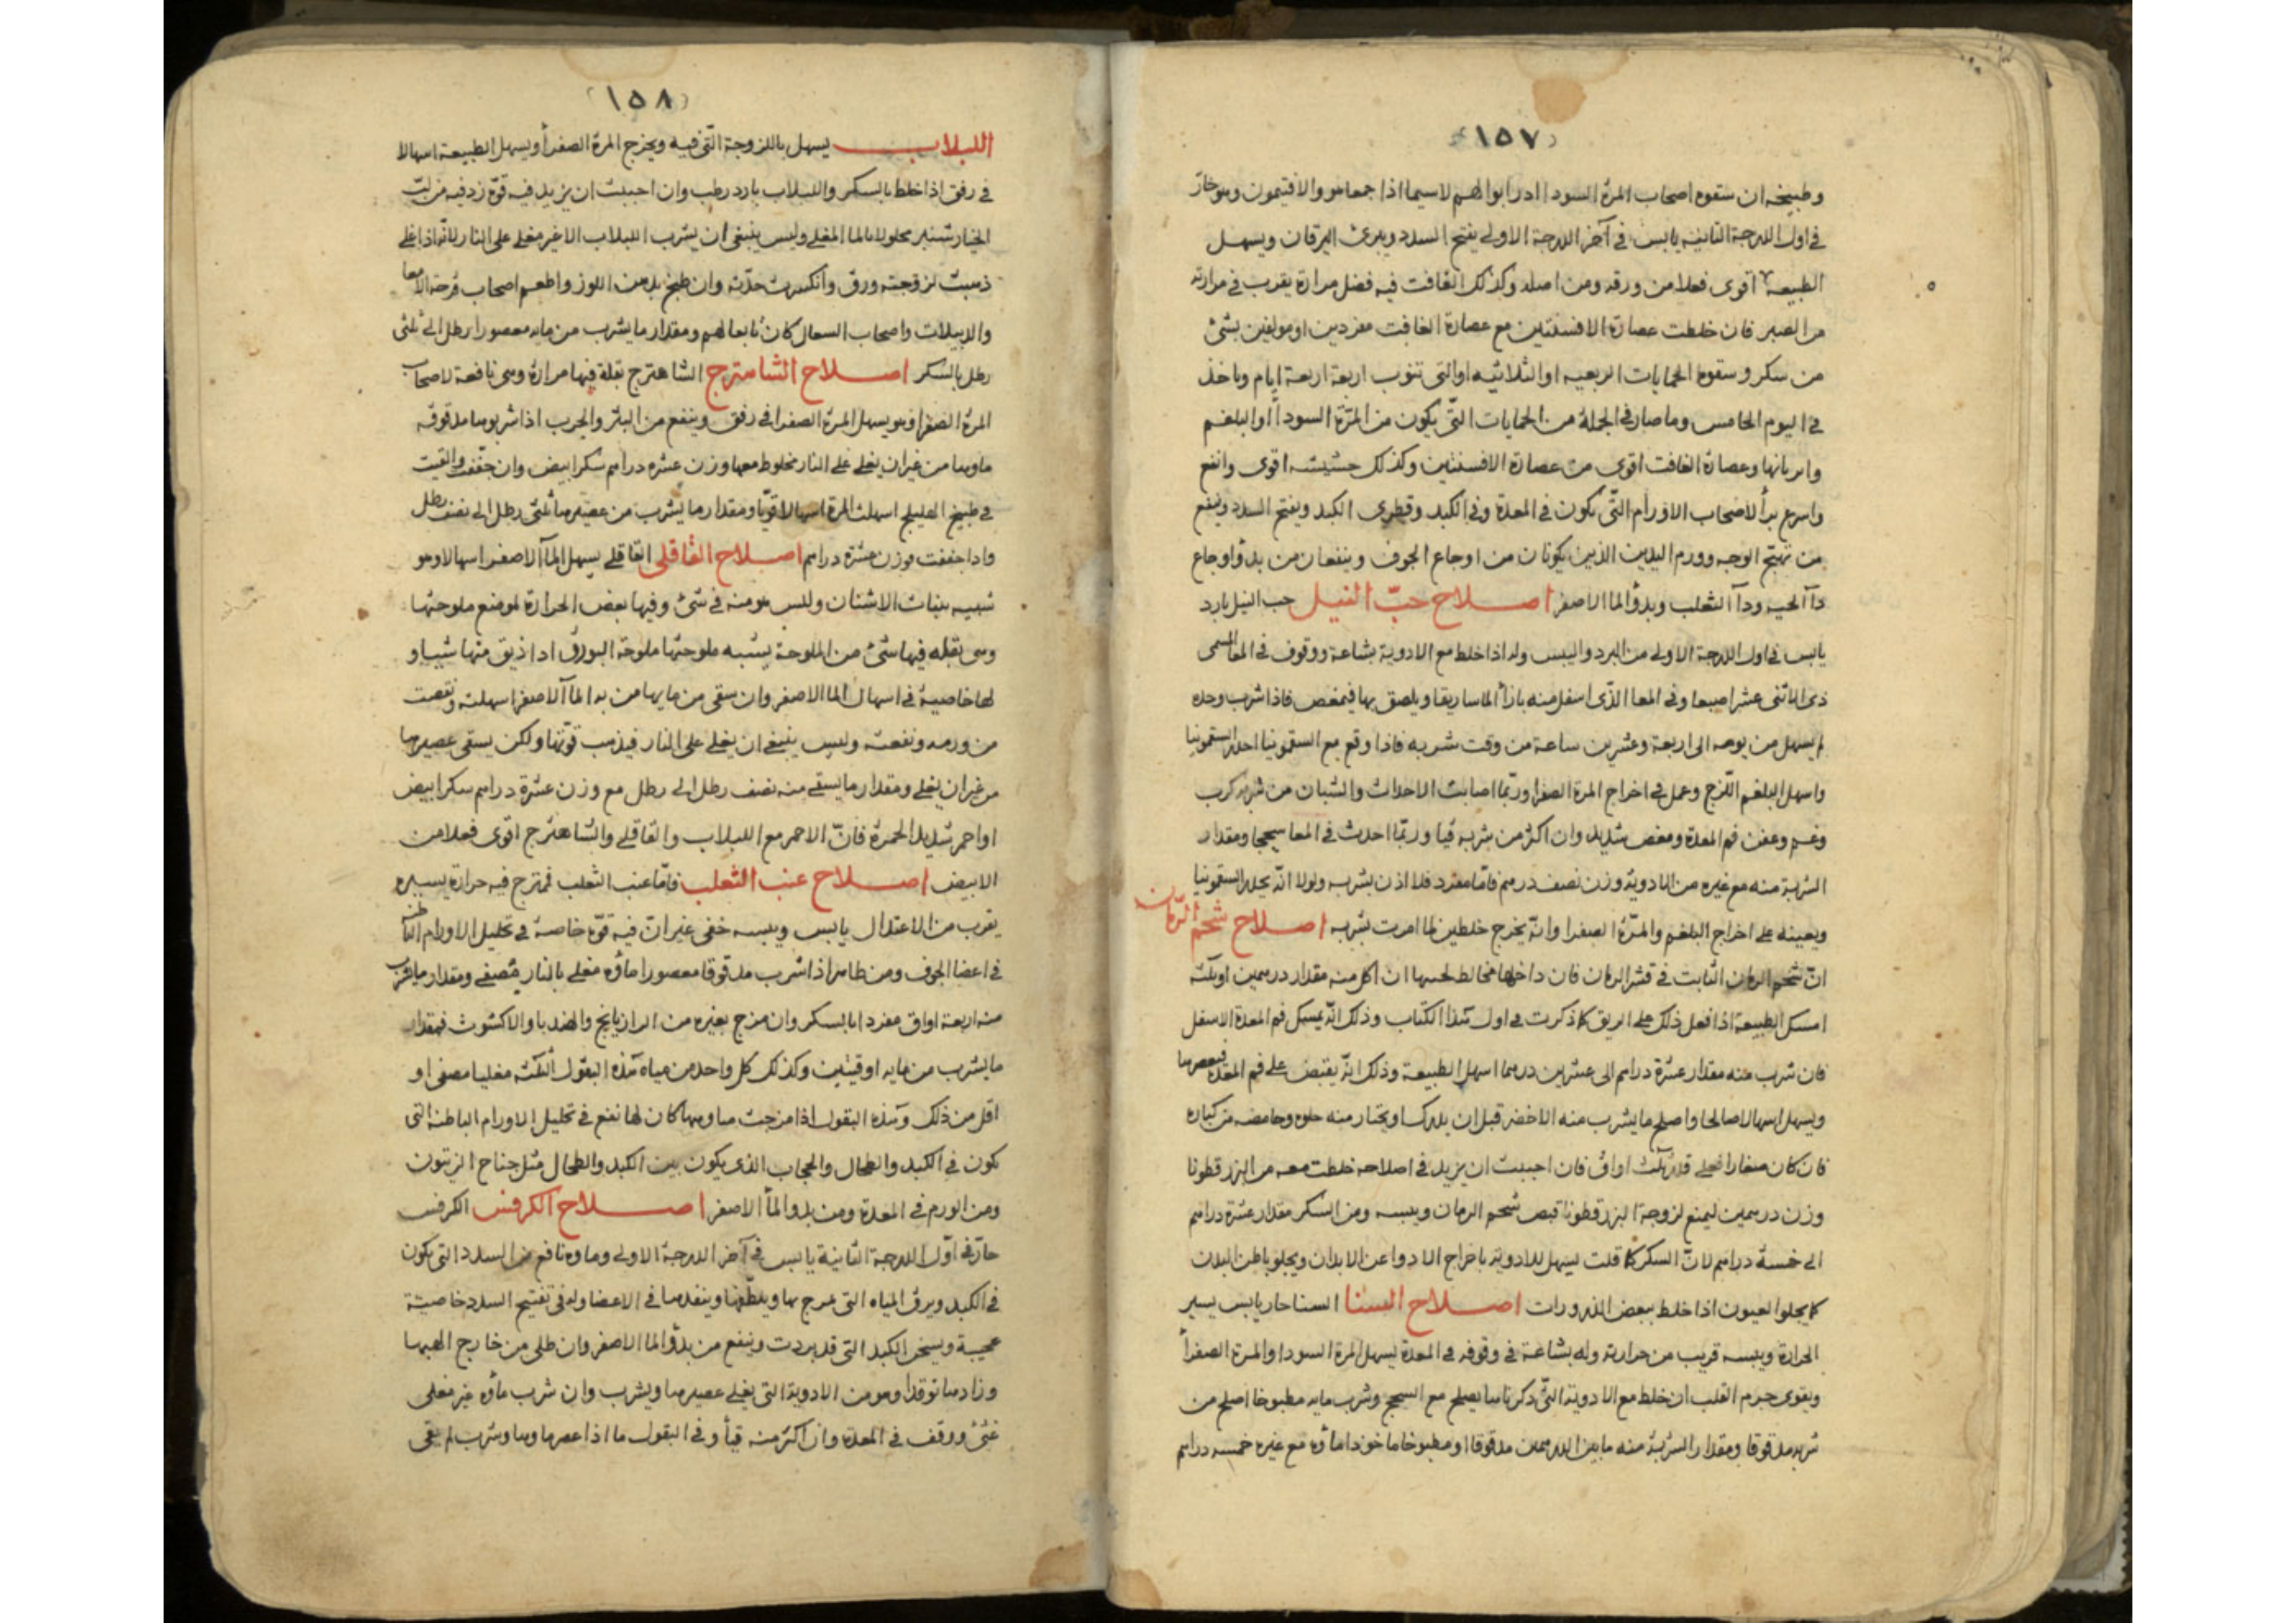 (١٥٧)
وطبيخه ان سقوه اصحاب المرة السودا ادرابوالهم لاسيما اذا جمعا هو والافتيمون وهو حار
في اول الدرجة الثانية يابس في آخر الدرجة الاولى يفتح السدد ويبرئ اليرقان ويسهل
الطبيعه اقوى فعلا من ورقه ومن اصله وكذلك الغافت فيه فضل مرارة يقرب في مرارته
من الصبر فان خلطت عصارة الافسنتين مع عصارة الغافت مفردين او مولفين بشئ
من سكر وسقوه الحمايات الربعيه او الثلاثيه او التى تنوب اربعة اربعة ايام وياخذ
في اليوم الخامس وما صار في الجملة من الحمايات التى يكون من المرة السودآ او البلغم
وابريانها وعصارة الغافت اقوى من عصارة الافسنتين وكذلك حشيشه اقوى وانفع
واسرع برأ لاصحاب الاورام التى يكون في المعدة وفي الكبد وقطرى الكبد ويفتح السدد وينفع
من تهيج الوجه وورم اليدين الذين يكونان من اوجاع الجوف وينفعان من بدؤ اوجاع
دآ الحيه ودآ الثعلب وبدؤ الما الاصفر اصلاح حبّ النيل حب النيل بارد
يابس في اول الدرجة الاولى من البرد واليبس وله اذا خلط مع الادوية بشاعة ووقوف في المعا المسمى
ذى الاثنى عشر اصبعا وفي المعا الذى اسفل منه بازأ الماساريقا ويلصق بها فيمغص فاذا شرب وحده
لم يسهل من يومه الى اربعة وعشرين ساعة من وقت شربه فاذا وقع مع السقمونيا احدر السقمونيا
واسهل البلغم اللزج وعمل في اخراج المرة الصفرا وربّما اصابت الاحداث والشبان من شربه كرب
وغم وعفن فم المعدة ومغص شديد وان اكثر من شربه قيا وربّما احدث في المعا سحجا ومقدار
الشربة منه مع غيره من الادوية وزن نصف درهم فاما مفرد فلا اذن بشربه ولولا انّه يحدر السقمونيا
ويعينه على اخراج البلغم والمرّة الصفرا وانّه يخرج خلطين لما امرت بشربه اصلاح شحم الرمان
انّ شحم الرمان الثابت في قشر الرمان فان داخلها مخالط لحبها ان اكل منه مقدار درهمين او ثلثه
امسك الطبيعة اذا فعل ذلك على الريق كما ذكرت في اول هذا الكتاب وذلك انّه يمسك فم المعدة الاسفل
فان شرب منه مقدار عشرة دراهم الى عشرين درهما اسهل الطبيعة وذلك انّه يقبض على فم المعدة فيعصرها
ويسهل اسهالا صالحا واصلح ما يشرب منه الاخضر قبل ان يدرك او يختار منه حلوه وحامضه من كباره
فان كان صغارا فعلى قدر ثلث اواق فان احببت ان يزيد في اصلاحه خلطت معه من البزر قطونا
وزن درهمين ليمنع لزوجة البزر قطونا قبض شحم الرمان ويبسه ومن السكر مقدار عشرة دراهم
الى خمسة دراهم لانّ السكر كما قلت يسهل للادوية باخراج الادوا عن الابدان ويجلو باطن البدن
كما يجلوا العيون اذا خلط ببعض الذرورات اصلاح السنا السنا حار يابس يسير
الحرارة ويبسه قريب من حرارته وله بشاعة في وقوفه في المعدة يسهل المرة السودا والمرة الصفرأ
ويقوى جرم القلب ان خلط مع الادوية التى ذكرناها يصلح مع السحج وشرب مايه مطبوخا اصلح من
شربه مدقوقا ومقدار الشربة منه مابين الدرهمين مدقوقا او مطبوخا ماخوذا ماؤه مع غيره خمسه دراهم
(١٥٨)
اللبلاب يسهل باللزوجة التى فيه ويخرج المرة الصفرأ ويسهل الطبيعة اسهالا
في رفق اذا خلط بالسكر واللبلاب بارد رطب وان احببت ان يزيد فيه قوة زد فيه من لبّ
الخيارشنبر محلولا بالما المغلى وليس ينبغى ان يشرب اللبلاب الا غير مغلى على النار لانّه اذا غلى
ذهبت لزوجته ورق وانكسرت حدّته وان طبخ بدهن اللوز واطعم اصحاب قرحة الامعا
والدبيلات واصحاب السعال كان نافعا لهم ومقدار ما يشرب من مايه معصورا رطل الى ثلثى
رطل بالسكر اصلاح الشاهترج الشاهترج بقلة فيها مرارة وهى نافعة لاصحاب
المرة الصفرا وهو يسهل المرة الصفرا في رفق وينفع من البثر والجرب اذا شربوها مدقوقه
ماوها من غير ان يغلى على النار مخلوط معها وزن عشره دراهم سكر ابيض وان جففت والقيت
في طبيخ الهليلج اسهلت المرة اسهالا قويّا ومقدار ما يشرب من عصيرها ثلثى رطل الى نصف رطل
واذا جففت فوزن عشرة دراهم اصلاح القاقلى القاقلى يسهل المآ الاصفر اسهالا وهو
شبيه بنبات الاشنان وليس هو منه في شئ وفيها بعض الحرارة لموضع ملوحتها
وهى بقله فيها شئ من الملوحة يشبه ملوحتها ملوحة البورق اذا ذيق منها شيا و
لها خاصية في اسهال الما الاصفر وان سقى من مايها من به المآ الاصفر اسهلته ونقصت
من ورمه ونفعته وليس ينبغى ان يغلى على النار فيذهب قوتها ولكن يسقى عصيرها
من غير ان يغلى ومقدار ما يسقى منه نصف رطل الى رطل مع وزن عشرة دراهم سكر ابيض
او احمر شديد الحمرة فانّ الاحمر مع اللبلاب والقاقلى والشاهترج اقوى فعلا من
الابيض اصلاح عنب الثعلب فامّا عنب الثعلب فمترج فيه حرارة يسيره
يقرب من الاعتدال يابس ويبسه خفى غير انّ فيه قوّة خاصة في تحليل الاورام الباطنه
في اعضا الجوف ومن ظاهر اذا شرب مدقوقا معصورا ماؤه مغلى بالنار مصفى ومقدار ما يشرب
منه اربعة اواق مفردا بالسكر وان مزج بغيره من الرازيانج والهندبا والاكشوث فمقدار
ما يشرب من مايه اوقيتين وكذلك كل واحد من مياه هذه البقول الثلثه مغليا مصفى او
اقل من ذلك وهذه البقول اذا مزجت مياهها كان لها نفع في تحليل الاورام الباطنة التى
يكون في الكبد والطحال والحجاب الذى يكون بين الكبد والطحال مثل جناح الزيتون
ومن الورم في المعدة ومن بدو المأ الاصفر اصلاح الكرفس الكرفس
حارّ في اوّل الدرجة الثانية يابس في آخر الدرجة الاولى وماوه نافع من السدد التى يكون
في الكبد ويرق المياه التى يمزج بها ويلطّفها وينفدها في الاعضا وله في تفتيح السدد خاصية
عجيبة ويسخن الكبد التى قد بردت وينفع من بدؤ الما الاصفر وان طلى من خارج الهبها
وزادها توقدا وهو من الادوية التى يغلى عصيرها ويشرب وان شرب ماؤه غير مغلى
غثئ ووقف في المعدة وان اكثر منه قيأ وفي البقول ما اذا عصر ماوها وشرب لم يبقى